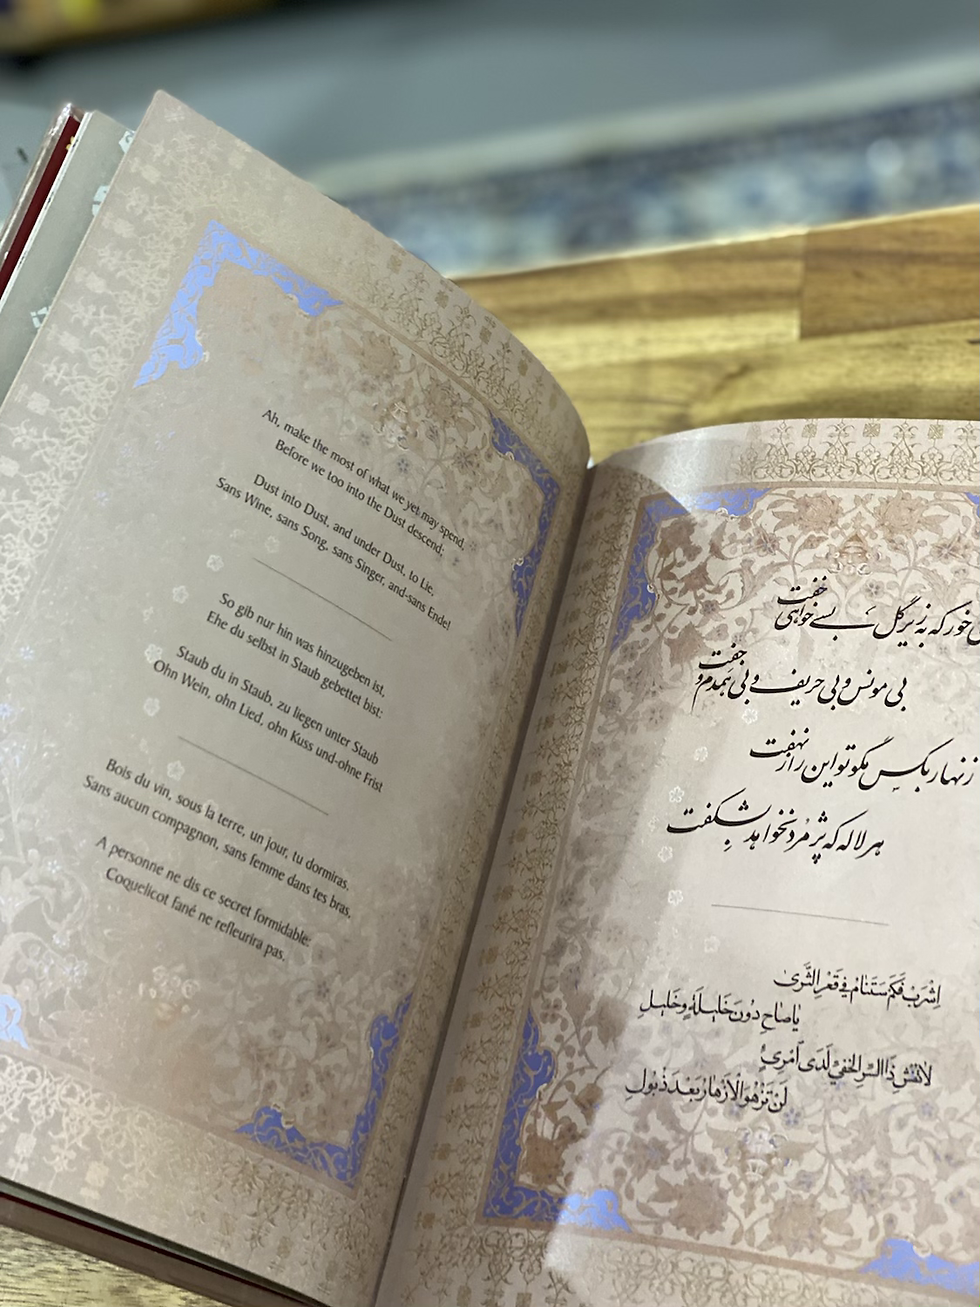 Ah, make the most of what we yet may spend,
Before we too into the Dust descend;
Dust into Dust, and under Dust, to Lie,
Sans Wine, sans Song, sans Singer, and-sans Ende!
So gib nur hin was hinzugeben ist,
Ehe du selbst in Staub gebettet bist:
Staub du in Staub, zu liegen unter Staub
Ohn Wein, ohn Lied, ohn Kuss und-ohne Frist
Bois du vin, sous la terre, un jour, tu dormiras.
Sans aucun compagnon, sans femme dans tes bras,
A personne ne dis ce secret formidable:
Coquelicot fané ne refleurira pas.
خور که به زیر گل بسے خواهی خفت
بی مونس و بی حریف و بی همدم و جفت
زنهار بکس مگو تو این راز نهفت
هر لاله که پژمرد نخواهد بشکفت
اِشْرَبْ فَكَمْ سَتَنَامُ فِي قَعْرِ الثَّرىٰ
يَا صَاحِ دُونَ خَلِيلَةٍ وَخَلِيلِ
لَا تَفْشِ ذَا السِّرِ الخَفِيِّ لَدَى امْرِئٍ
لَنْ تَزْهُوَ الْأَزْهَارُ بَعْدَ ذُبُولِ